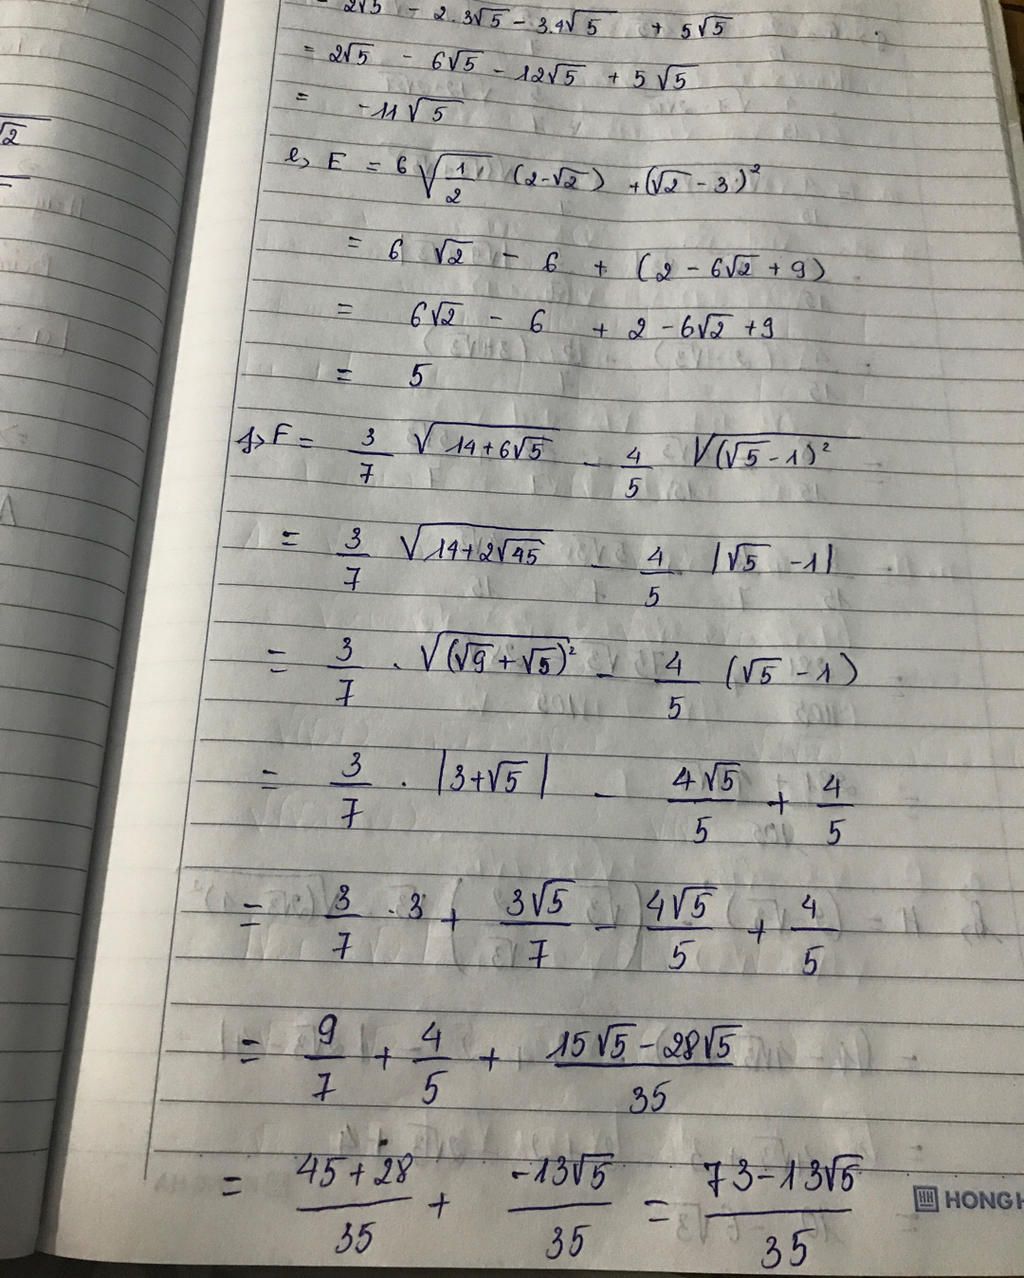 - 2√5 - 2.3√5 - 3.4√5 + 5√5
= 2√5 - 6√5 - 12√5 + 5√5
= -11√5
e, E = 6√(1/2) (2-√2) + (√2 - 3)²
= 6√2 - 6 + (2 - 6√2 + 9)
= 6√2 - 6 + 2 - 6√2 + 9
= 5
f, F = 3/7 √(14+6√5) - 4/5 √((√5 - 1)²)
= 3/7 √(14+2√45) - 4/5 |√5 - 1|
= 3/7 . √((√9 + √5)²) - 4/5 (√5 - 1)
= 3/7 . |3+√5| - 4√5/5 + 4/5
= 3/7 . 3 + 3√5/7 - 4√5/5 + 4/5
= 9/7 + 4/5 + (15√5 - 28√5)/35
= (45+28)/35 + (-13√5)/35 = (73-13√5)/35
√2